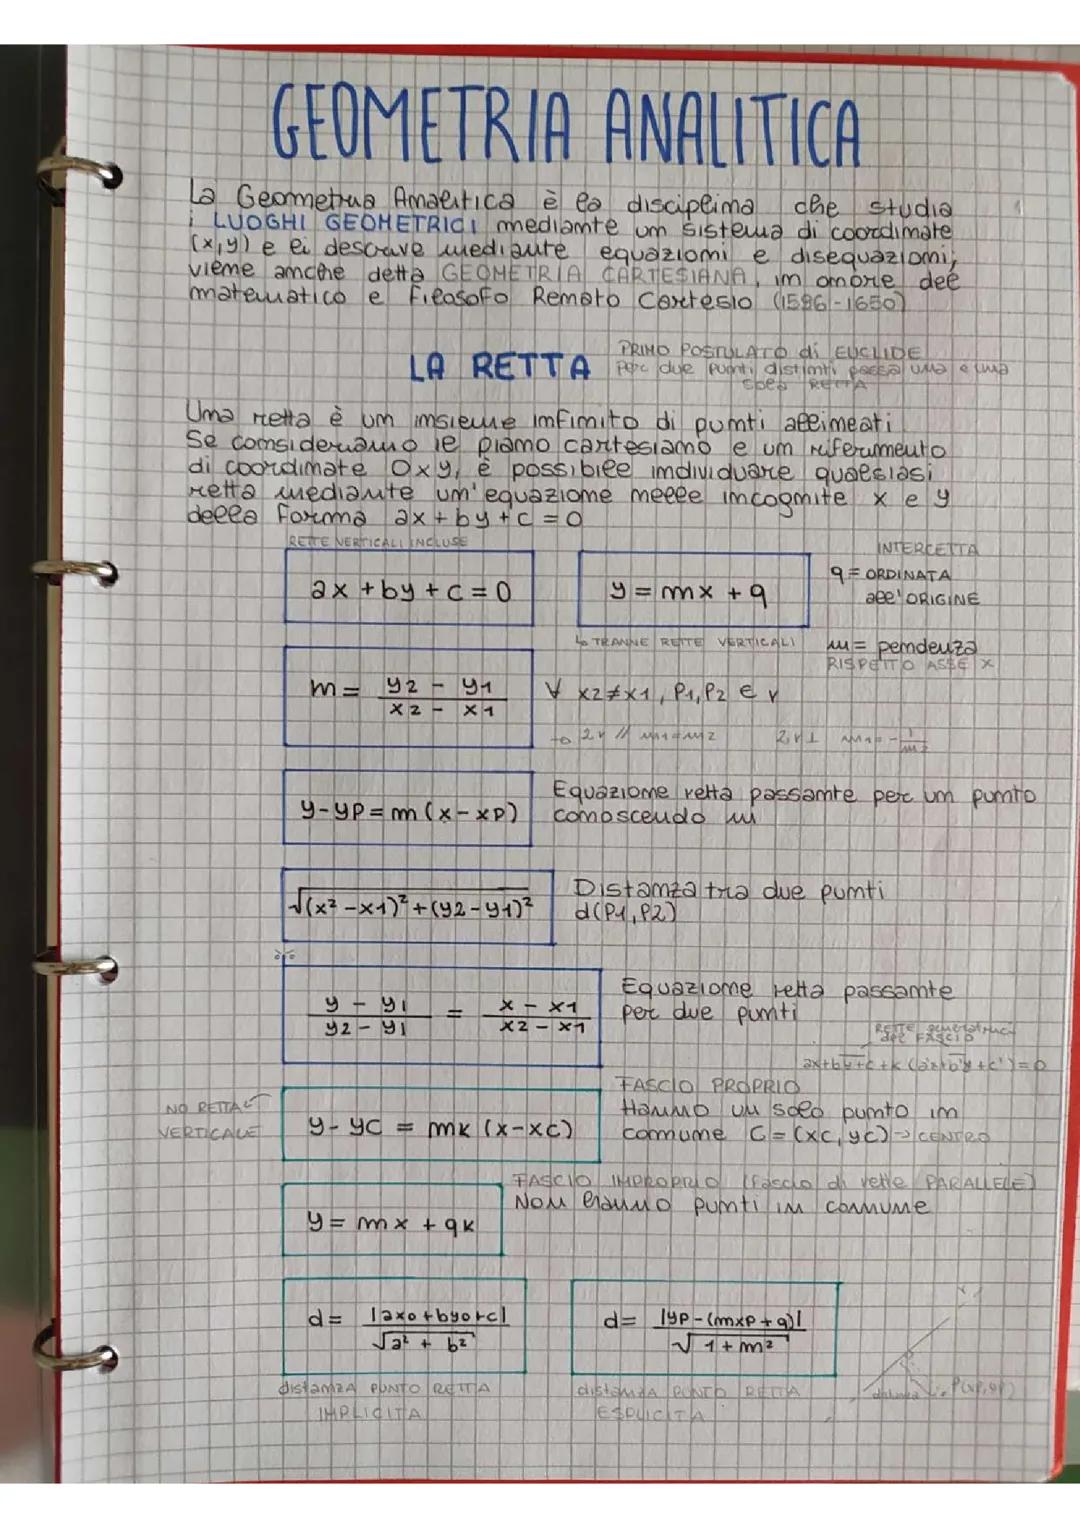 GEOMETRIA ANALITICA
La Geometria Analitica è la disciplina che studia
i LUOGHI GEOMETRICI mediante un sistema di coordinate
(x,y) e li descrive mediante equazioni e disequazioni,
viene anche detta GEOMETRIA CARTESIANA, in onore del
matematico e filosofo Renato Cartesio (1596-1650)
LA RETTA
PRIMO POSTULATO di EUCLIDE
Per due punti distinti passa una e una
sola RETTA
Una retta è un insieme infinito di punti allineati
Se consideriamo il piano cartesiano e un riferimento
di coordinate Oxy, è possibile individuare qualsiasi
retta mediante un'equazione nelle incognite x e y
della forma ax+by+c=0
RETTE VERTICALI INCLUSE
ax+by+c=0
y=mx+q
INTERCETTA
q=ORDINATA
all'ORIGINE
↳ TRANNE RETTE VERTICALI
m= pendenza
RISPETTO ASSE X
m= (y2 - y1)/(x2 - x1)
∀ x2≠x1, P1,P2 ∈ r
2r // m1=m2
2r⊥ m1=-1/m2
y-yP=m(x-xP)
Equazione retta passante per un punto
conoscendo m
√(x²-x1)²+(y2-y1)²
Distanza tra due punti
d(P1,P2)
(y - y1)/(y2 - y1) = (x - x1)/(x2 - x1)
Equazione retta passante
per due punti
RETTE generatrici
del FASCIO
ax+by+c+k(a'x+b'y+c')=0
NO RETTA
VERTICALE
y-yC = mk (x-xC)
FASCIO PROPRIO
Hanno un solo punto in
comune C=(xC,yC)→CENTRO
y=mx+qk
FASCIO IMPROPRIO (fascio di rette PARALLELE)
Non hanno punti in comune
d= |ax0+by0+c|/√a²+b²
d= |yP-(mxP+q)|/√1+m²
distanza PUNTO RETTA
IMPLICITA
distanza PUNTO RETTA
ESPLICITA
distanza
P(xP,yP)